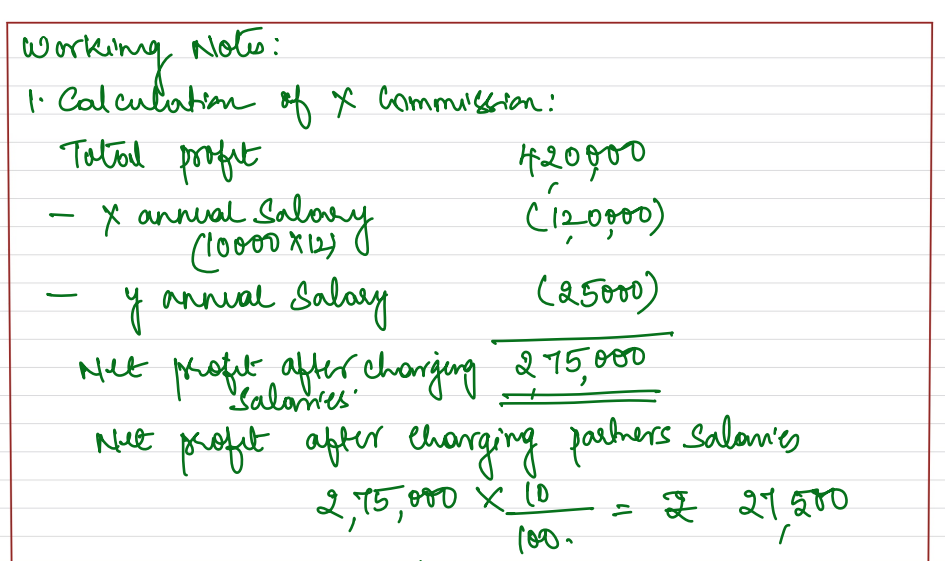 Working Notes:
1. Calculation of X Commission:
Total profit 4,20,000
- X annual Salary (1,20,000)
(10000 X 12)
- Y annual Salary (25000)
Net profit after charging 2,75,000
Salaries
Net profit after charging partners Salaries
2,75,000 X 10/100 = ₹ 27,500